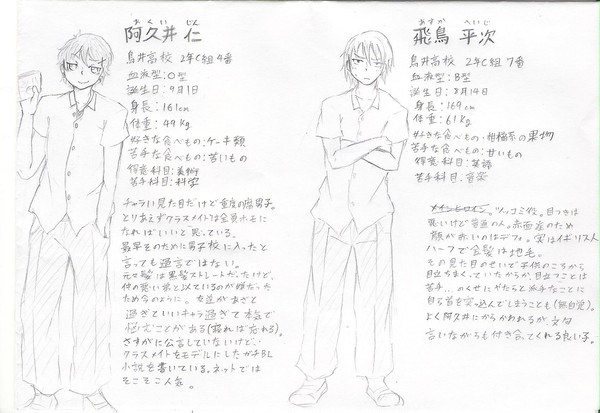 あくい じん
阿久井 仁
鳥井高校 2年C組 4番
血液型:O型
誕生日:9月1日
身長:161cm
体重:49kg
好きな食べもの:ケーキ類
苦手な食べもの:苦いもの
得意科目:美術
苦手科目:科学
チャラい見た目だけど重度の腐男子。
とりあえずクラスメイトは全員ホモに
なればいいと思っている。
最早そのために男子校に入ったと
言っても過言ではない。
元々髪は黒髪ストレートだったけど、
仲の悪い弟と似ているのが嫌だった
ため今のように。友達があざと
過ぎていいキャラ過ぎて本気で
悩むことがある(寝れば忘れる)。
さすがに公言していないけど、
クラスメイトをモデルにしたガチBL
小説を書いている。ネットでは
そこそこ人気。
あすか へいじ
飛鳥 平次
鳥井高校 2年C組 7番
血液型:B型
誕生日:8月14日
身長:169cm
体重:61kg
好きな食べもの:柑橘系の果物
苦手な食べもの:甘いもの
得意科目:英語
苦手科目:音楽
メインヒロイン。ツッコミ役。目つきは
悪いけど普通の人。赤面症のため
顔が赤いのはデフォ。実はイギリス人
ハーフで金髪は地毛。
その見た目のせいで子供のころから
目立ちまくっていたからか、目立つことは
苦手…のくせにやたらと派手なことに
自ら首を突っ込んでしまうことも(無自覚)。
よく阿久井にからかわれるが、文句
言いながらも付き合ってくれる良い子。